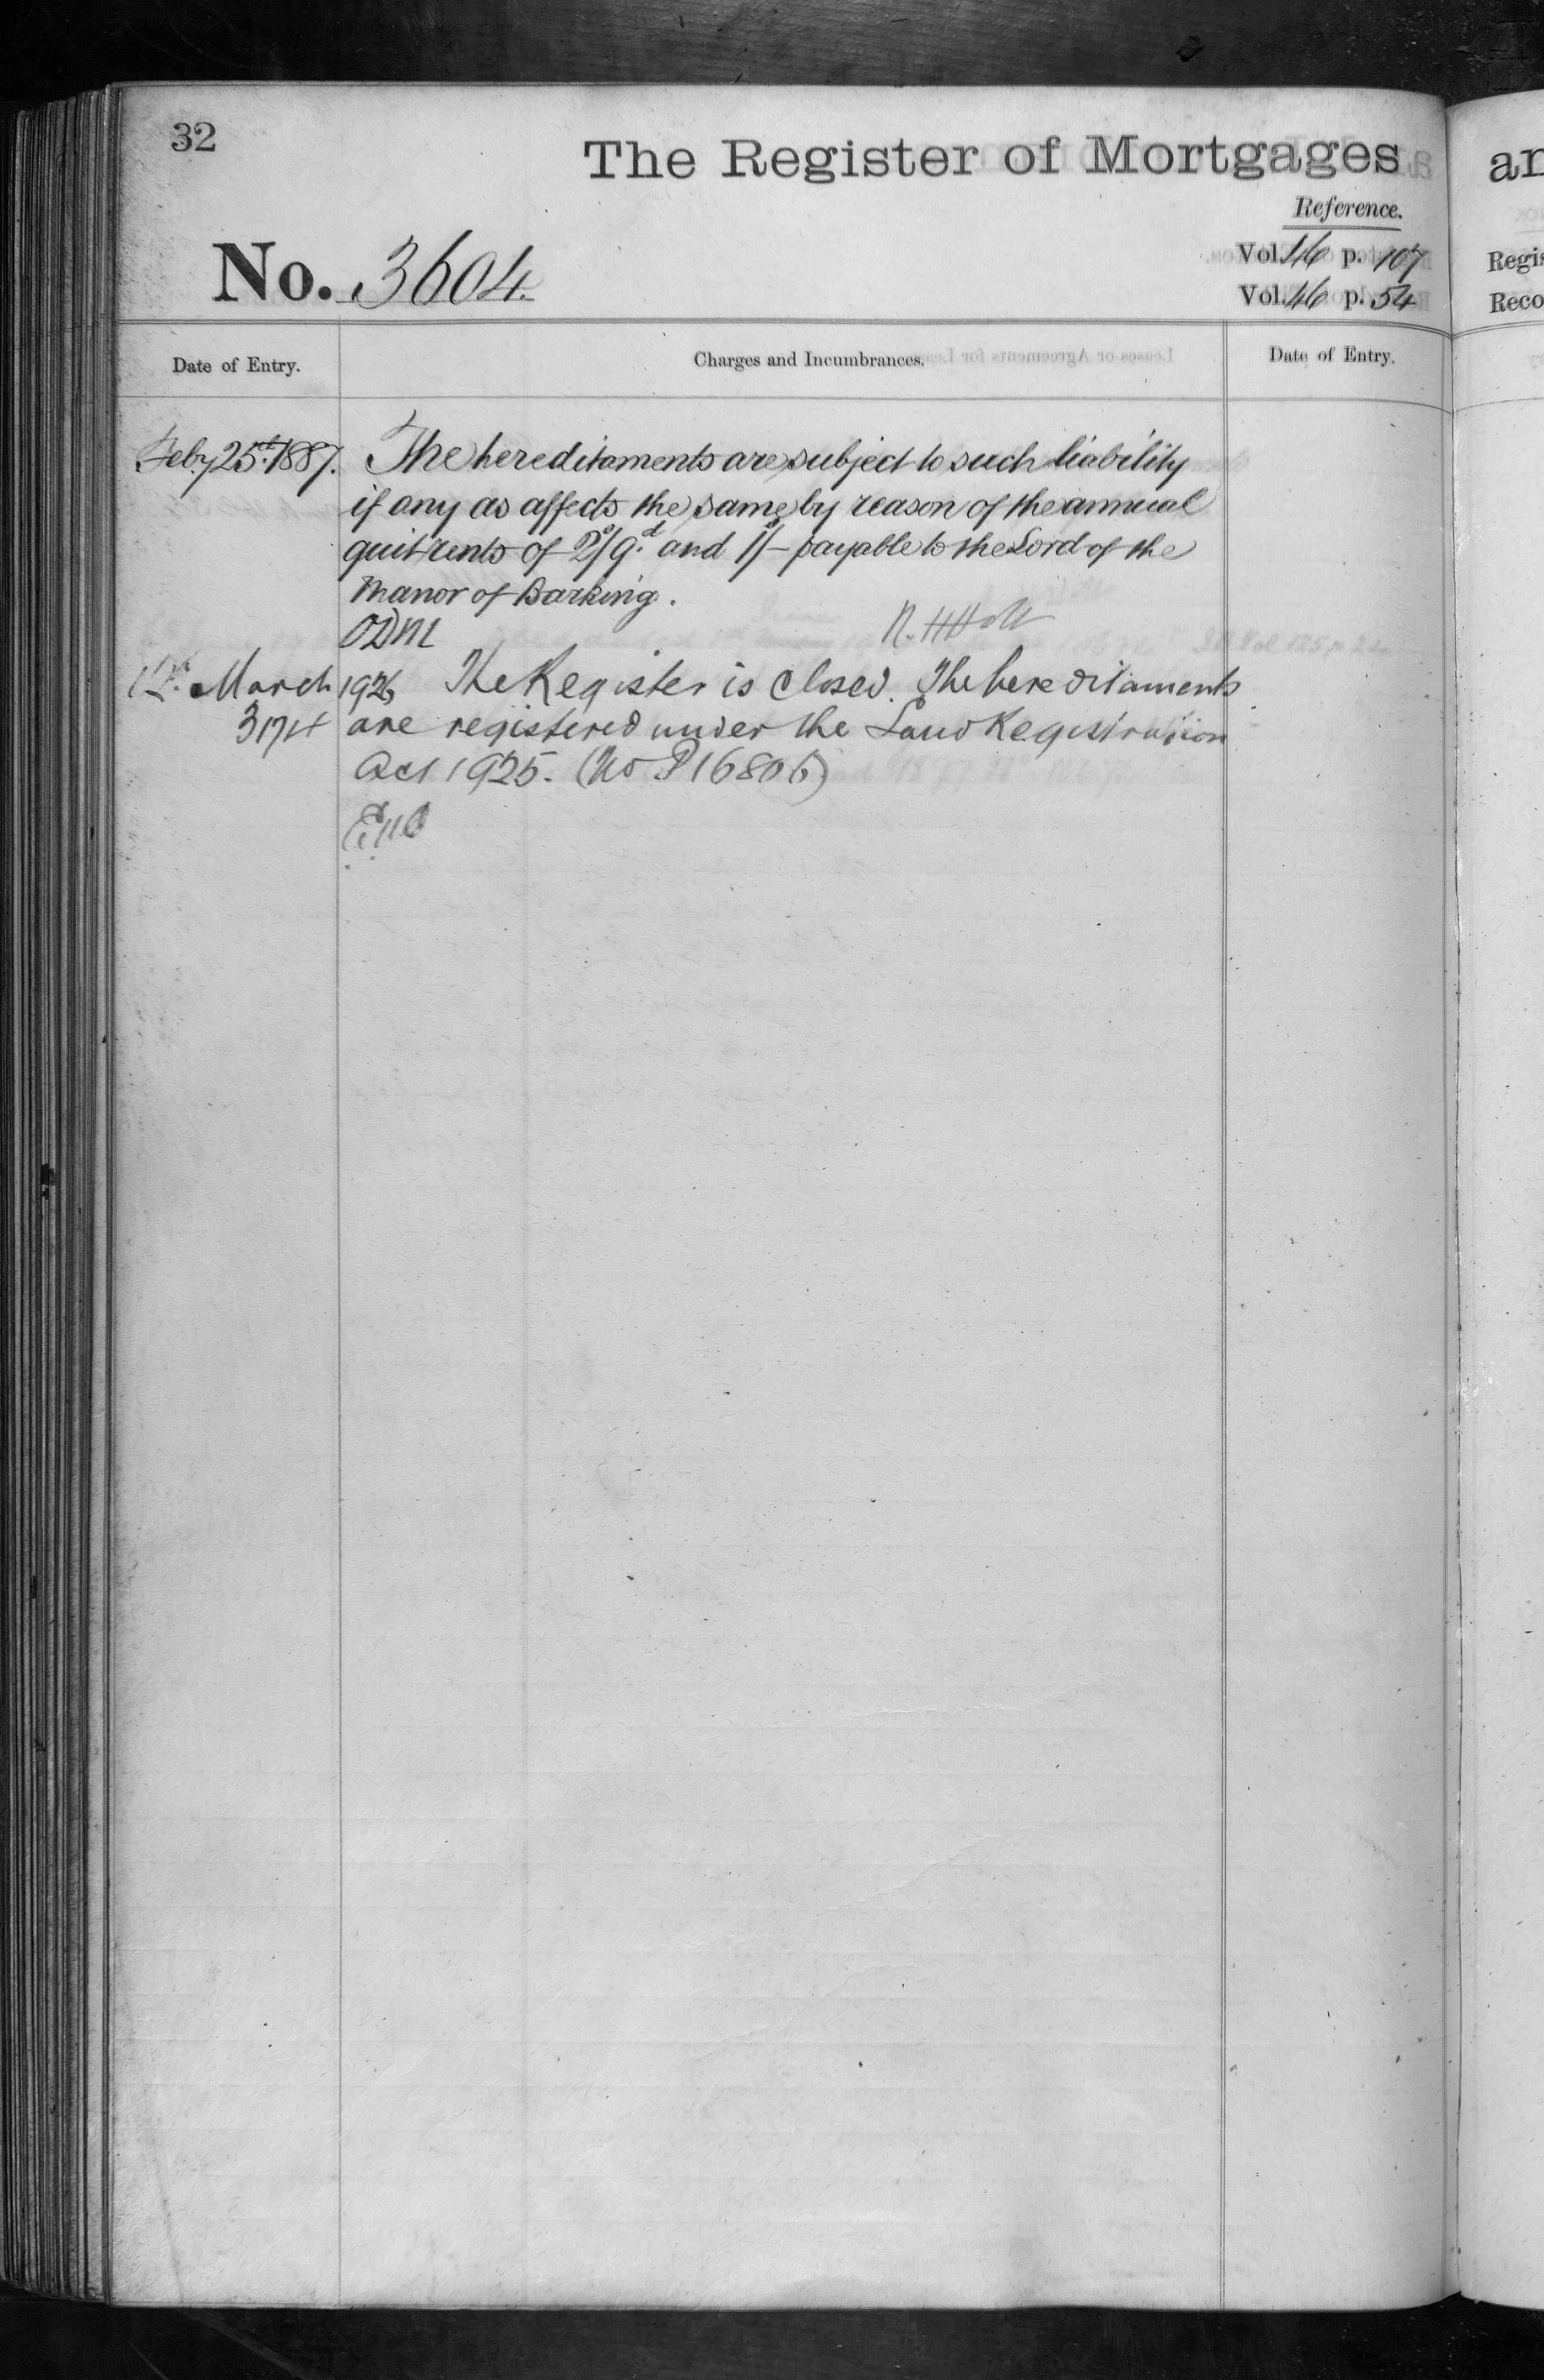 32
The Register of Mortgages
Reference.
No. 3604.
Vol. 46 p. 107
Vol. 46 p. 54
Date of Entry.
Charges and Incumbrances.
Date of Entry.
Feby 25th 1887. The hereditaments are subject to such liability
if any as affects the same by reason of the annual
quit rents of 2s/9d. and 1s/- payable to the Lord of the
Manor of Barking.
ODM N. H. Holt
March 1926 The Register is closed. The hereditaments
3174 are registered under the Land Registration
Act 1925. (No P16806)
an
Regis
Reco